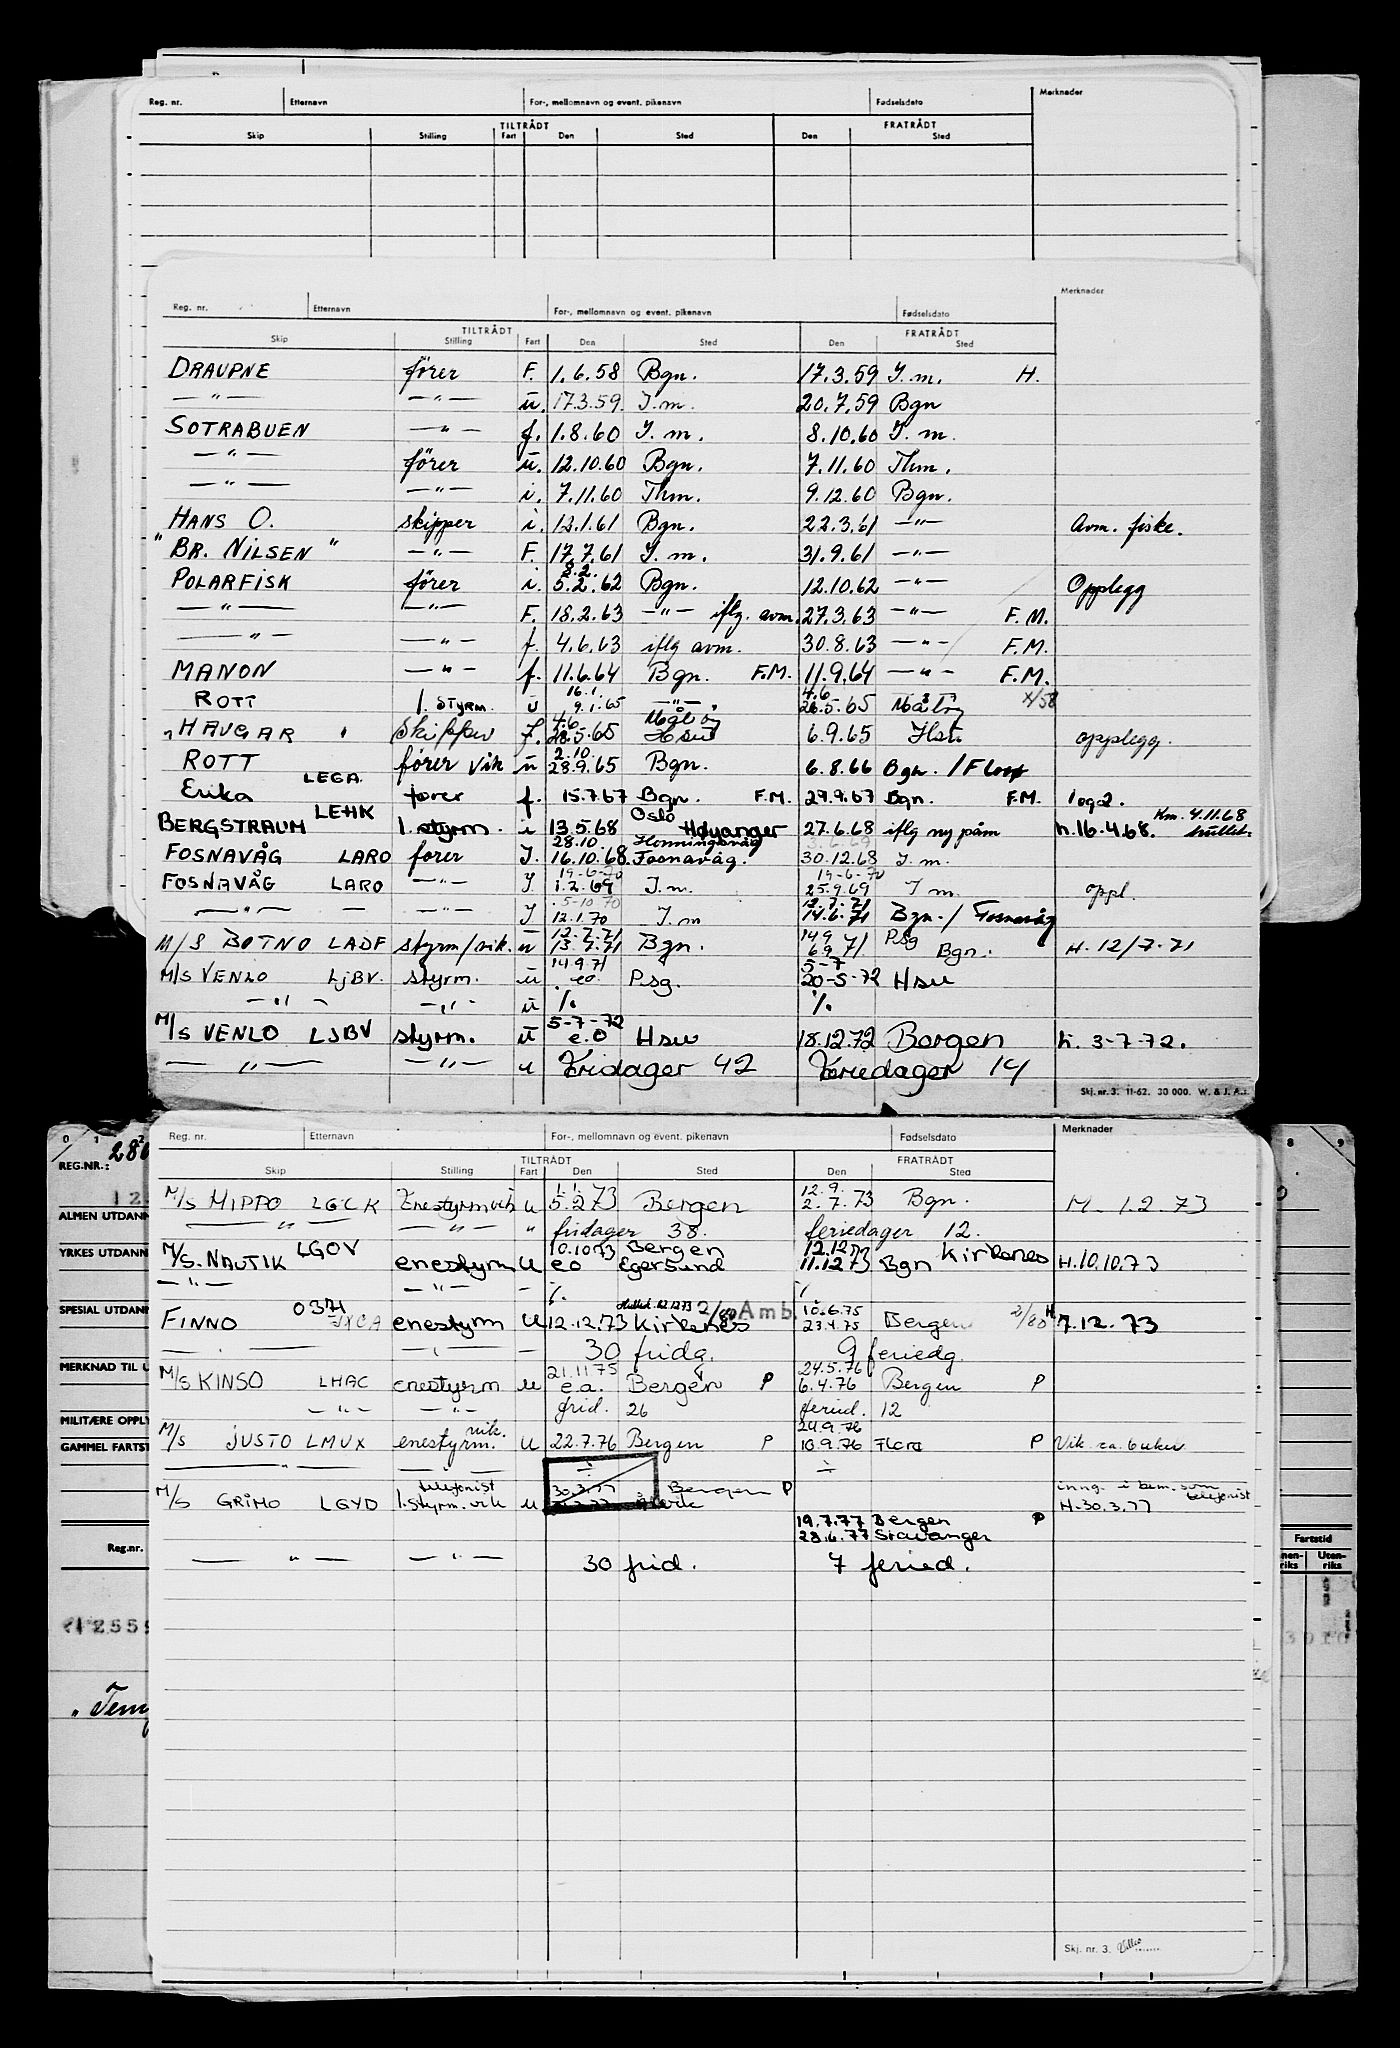 Reg. nr. Etternavn For-, mellomnavn og event. pikenavn Fødselsdato Merknader
TILTRÅDT FRATRÅDT
Skip Stilling Fart Den Sted Den Sted
Reg. nr. Etternavn For-, mellomnavn og event. pikenavn Fødselsdato Merknader
TILTRÅDT FRATRÅDT
Skip Stilling Fart Den Sted Den Sted
DRAUPNE fører F. 1.6.58 Bgn. 17.3.59 I.m. H.
—"— —"— u. 17.3.59. I.m. 20.7.59 Bgn
SOTRABUEN —"— f. 1.8.60 I.m. 8.10.60 I.m.
—"— fører u. 12.10.60 Bgn. 7.11.60 Thm.
—"— —"— i. 7.11.60 Thm. 9.12.60 Bgn.
HANS O. skipper i. 12.1.61 Bgn. 22.3.61 —"— Avm. fiske.
"BR. NILSEN" —"— F. 17.7.61 I.m. 31.9.61 —"—
8.2.
POLARFISK fører i. 5.2.62 Bgn. 12.10.62 —"— Opplegg
—"— —"— F. 18.2.63 —"— iflg. avm. 27.3.63 —"— F.M.
—"— —"— f. 4.6.63 iflg avm. 30.8.63 —"— F.M.
MANON —"— f. 11.6.64 Bgn. F.M. 11.9.64 —"— F.M.
16.1. 4.6
ROTT 1. styrm. u 9.1.65 —"— 26.5.65 Måløy x/58
4.6 Måløy
"HAUGAR" skipper f. 28.5.65 Hsu 6.9.65 Hsu opplegg.
2.10.
ROTT fører vik u 28.9.65 Bgn. 6.8.66 Bgn. / Florø
LEGA.
Erika fører f. 15.7.67 Bgn. F.M. 29.9.67 Bgn. F.M. 1 og 2.
LEHK Oslo Km. 4.11.68
BERGSTRAUM 1. styrm. i 13.5.68 Høyanger 27.6.68 iflg ny påm h. 16.4.68.
28.10. Honningsvåg 3.6.69
FOSNAVÅG LARO fører I. 16.10.68. Fosnavåg. 30.12.68 I.m.
19-6-70 19-6-70
FOSNAVÅG LARO —"— I 1.2.69 I.m. 25.9.69 I m. oppl.
5-10 70 12.7.71
—"— — —"— I 12.1.70 I.m 14.6.71 Bgn. / Fosnavåg
12.7.71 14.9 Psg
M/S BOTNO LADF styrm/vik. u 13.7.71 Bgn. 6.9.71 Bgn. H. 12/7-71
14.9.71 5-7
M/S VENLO LJBV. styrm. u e.o. Psg. 20-5-72 Hsu
—"— —"— u ./. ./.
5-7-72
M/S VENLO LJBV styrm. u e.o Hsu 18.12.72 Bergen h. 3-7-72.
—"— —"— u Fridager 42 Feriedager 14
Skj. nr. 3. 11-62. 30 000. W. & J. A.s
Reg. nr. Etternavn For-, mellomnavn og event. pikenavn Fødselsdato Merknader
TILTRÅDT FRATRÅDT
Skip Stilling Fart Den Sted Den Sted
1.1. 12.9.
M/S MIPPO LGCK Enestyrm vik u 5.2.73 Bergen 2.7.73 Bgn. M. 1.2.73
—"— —"— " fridager 38. feriedager 12.
LGOV 10.10.73 Bergen 12.12.73 Kirkenes
M/S. NAUTIK enestyrm u e.o Egersund 11.12.73 Bgn H. 10.10.73
—"— —"— - ./. ./.
0371 2/80 Amb. 10.6.75 2/80 H
FINNO JXCA enestyrm u 12.12.73 Kirkenes 23.4.75 Bergen 7.12.73
— " — — " — — 30 fridg. 9 feriedg.
21.11.75 24.5.76
M/S KINSO LHAC enestyrm u e.o. Bergen P 6.4.76 Bergen P
—"— —"— frid. 26 feried. 12
vik. 24.9.76
M/S JUSTO LMUX enestyrm. u 22.7.76 Bergen P 10.9.76 Florø P Vik ca. 6 uker
—"— ÷ ÷
telefonist 30.3.77 Bergen P inng. i bem. som telefonist
M/S GRIMO LGYD 1. styrm. vik u H-30.3.77
19.7.77 Bergen P
28.6.77 Stavanger
—"— —"— 30 frid. 7 feried.
Skj. nr. 3.
0 1 2
REG.NR.: 280
12
ALMEN UTDANN
YRKES UTDANN
SPESIAL UTDANN
MERKNAD TIL U
MILITÆRE OPPLY
GAMMEL FARTST
Reg.nr.
12559
8 9
Fartstid
Uten-
riks